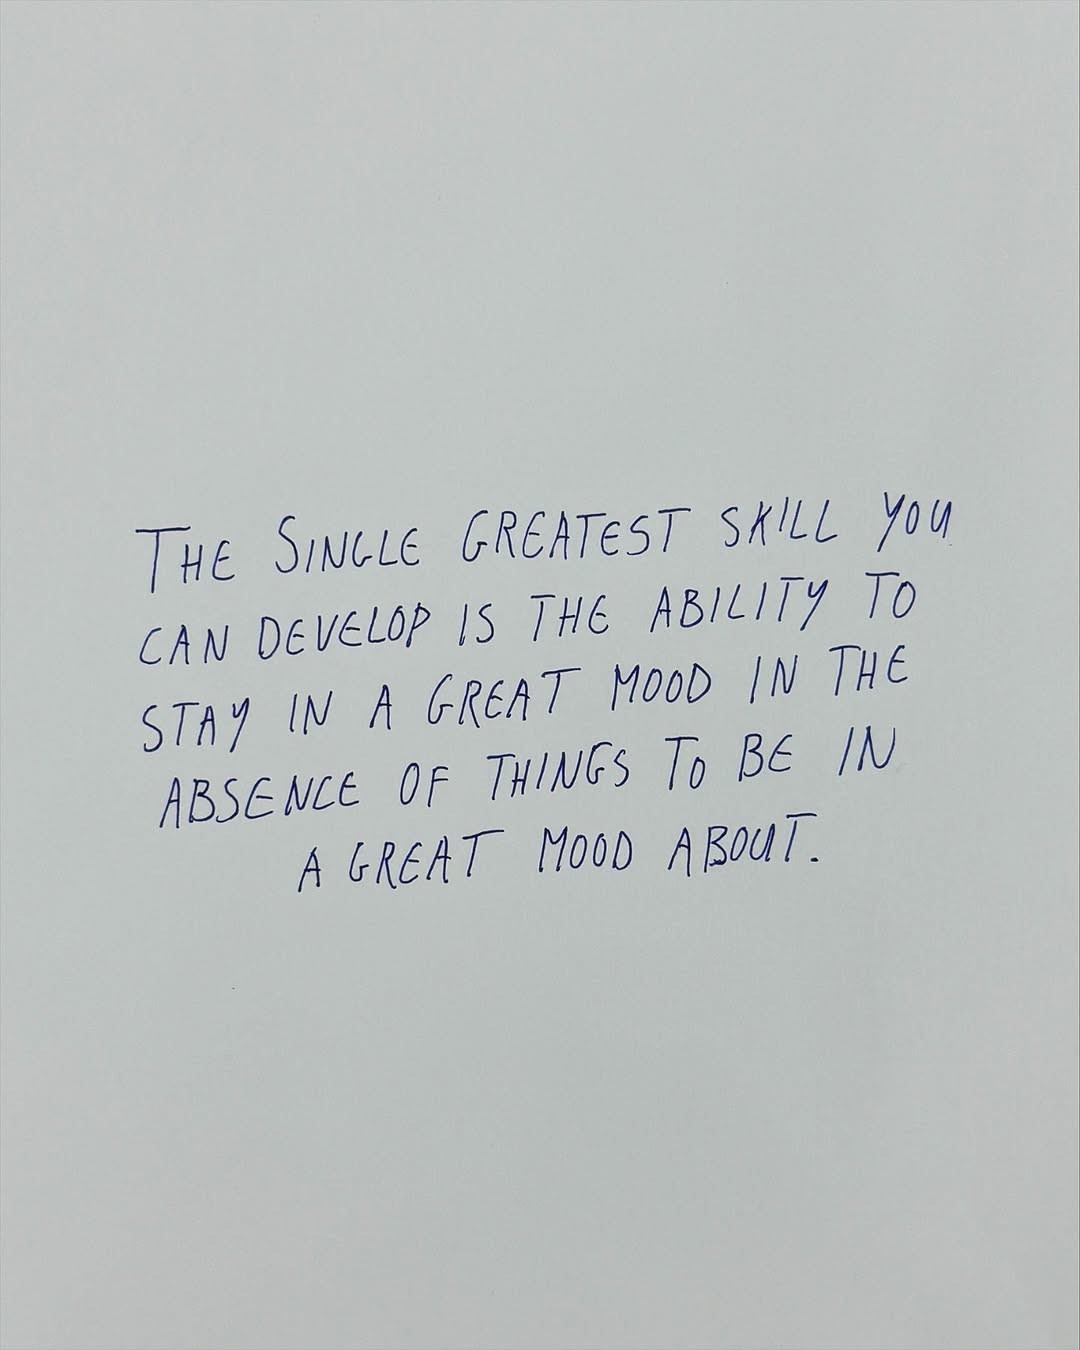 THE SINGLE GREATEST SKILL YOU
CAN DEVELOP IS THE ABILITY TO
STAY IN A GREAT MOOD IN THE
ABSENCE OF THINGS TO BE IN
A GREAT MOOD ABOUT.